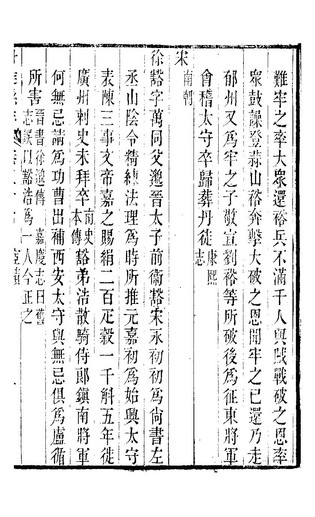 難牢之率大衆還裕兵不滿千人與賊戰破之恩率
衆鼓譟登蒜山裕奔擊大破之恩聞牢之已還乃走
郁州又爲牢之子敬宣劉裕等所破後爲征東將軍
會稽太守卒歸葬丹徒康熙志
宋南朝
徐豁字萬同父邈晉太子前衞豁宋永初初爲尙書左
丞山陰令精練法理爲時所推元嘉初爲始興太守
表陳三事文帝嘉之賜絹二百疋穀一千斛五年徙
廣州刺史未拜卒南史本傳豁弟浩散騎侍郎鎭南將軍
何無忌請爲功曹出補西安太守與無忌俱爲盧循
所害晉書徐邈傳嘉慶志曰舊志誤以豁浩爲一人今正之